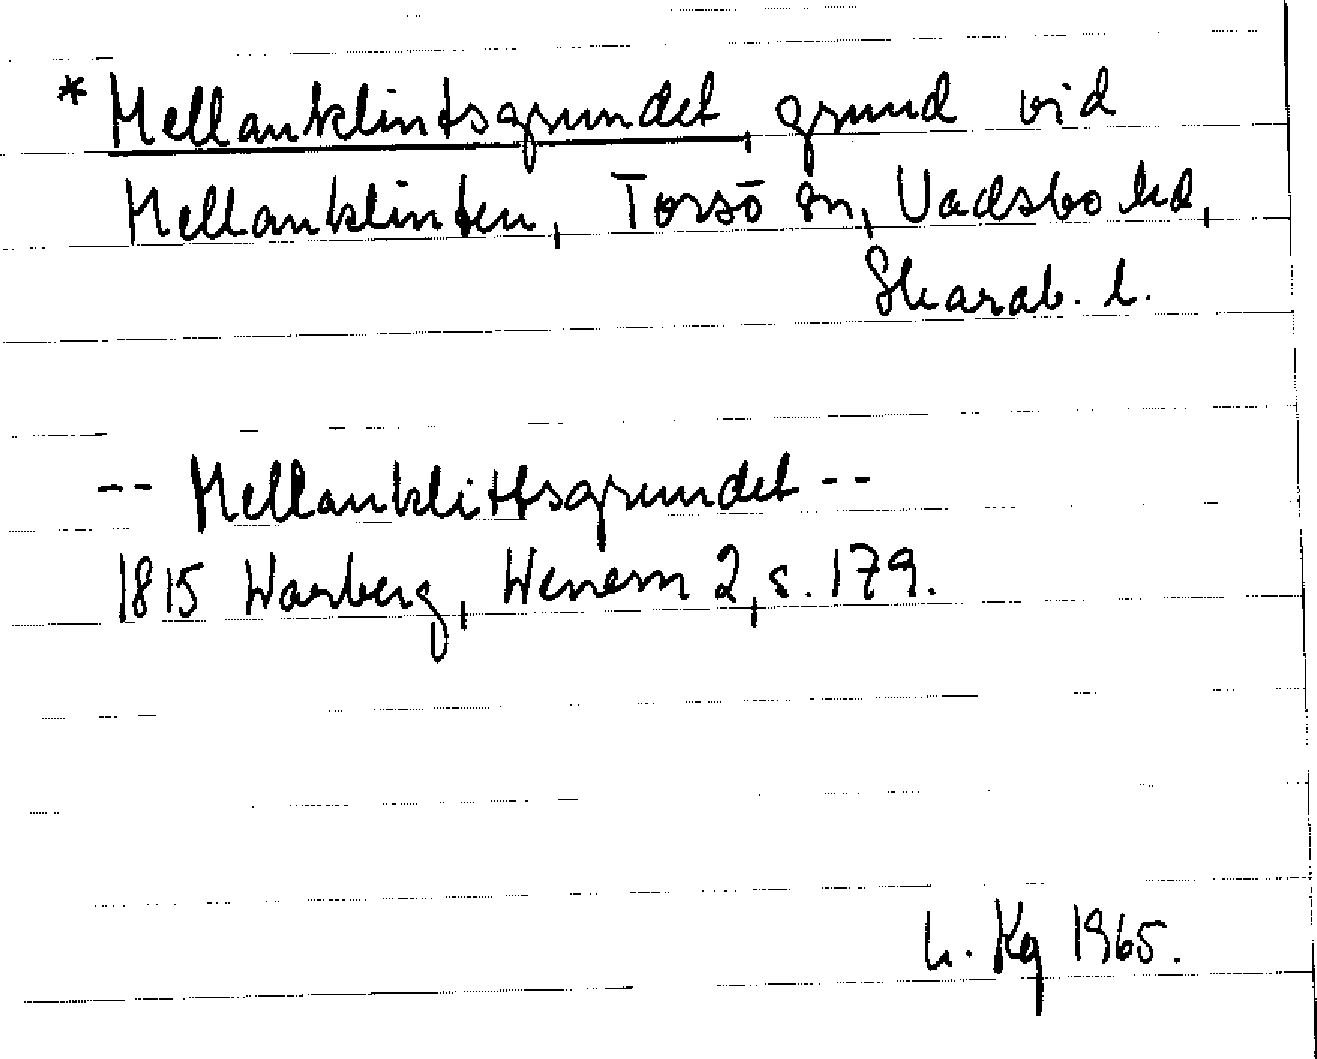 *Mellanklintsgrundet, grund vid
Mellanklinten, Torsö sn, Vadsbo hd,
Skarab. l.
-- Mellanklittsgrundet --
1815 Warberg, Wenern 2, s. 179.
L. Kg 1965.